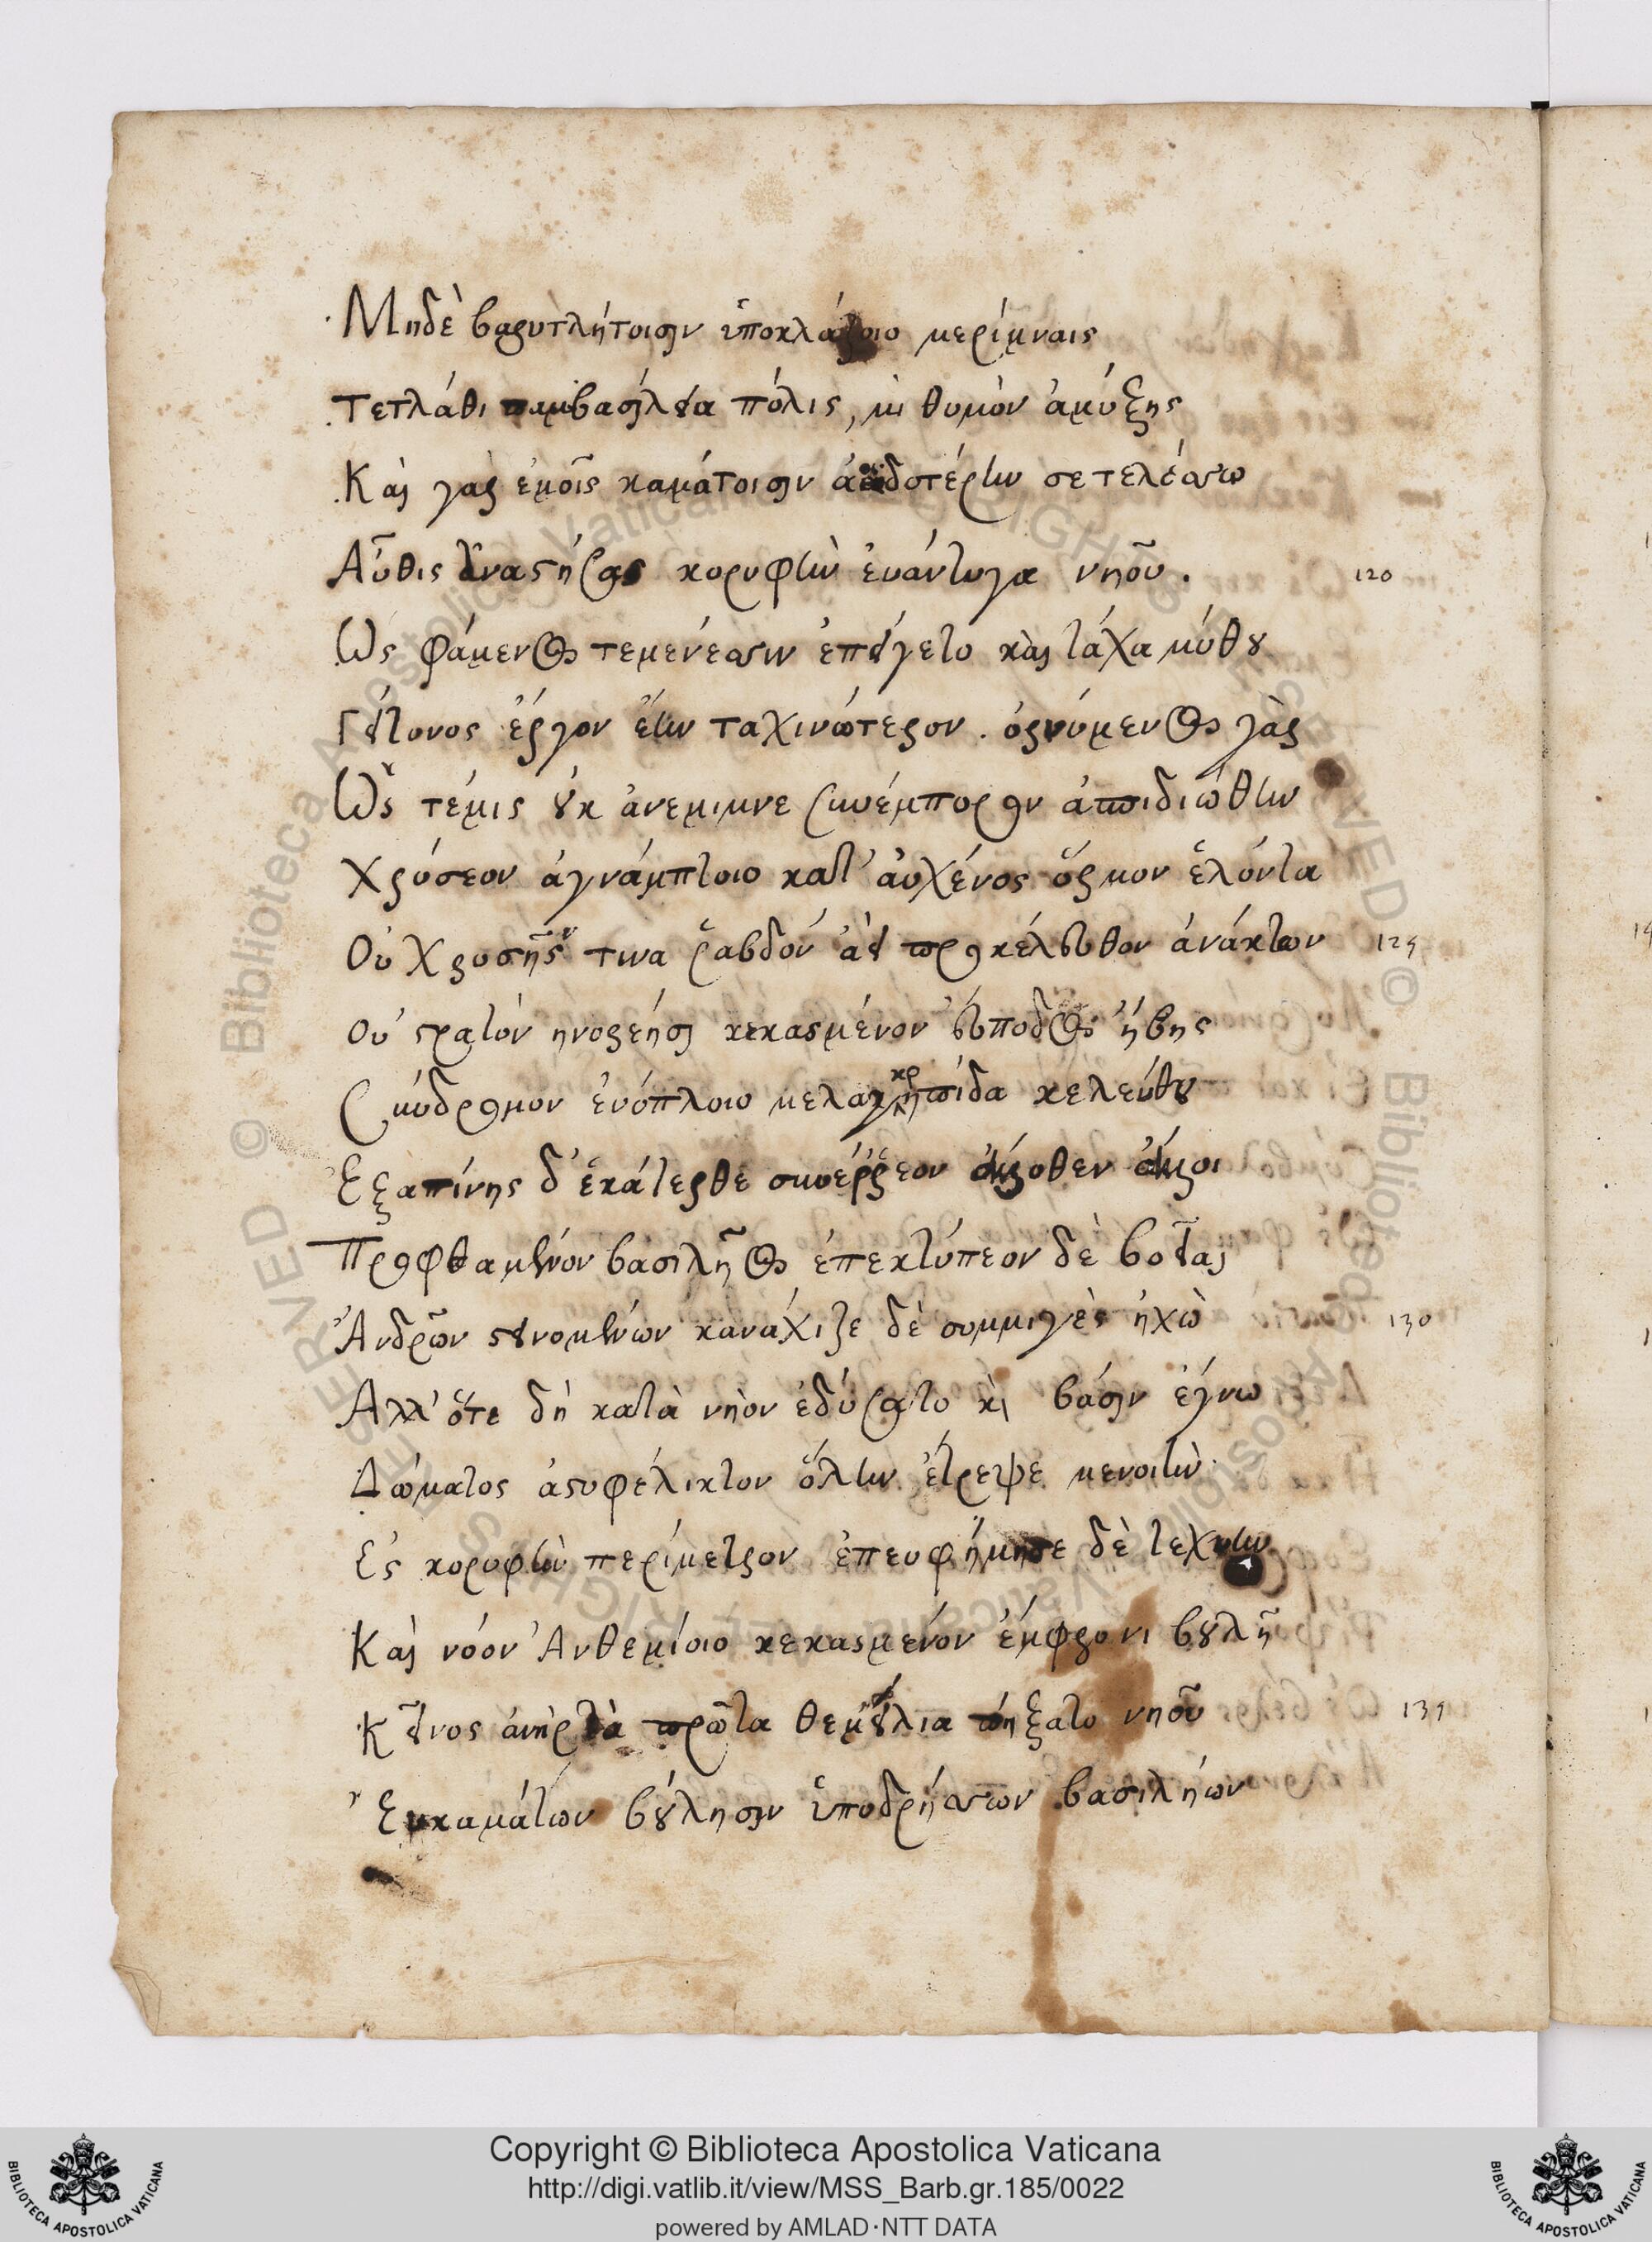 Μηδὲ βαρυτλήτοισιν ὑποκλάζοιο μερίμναις
Τετλάθι παμβασίλεια πόλις, μὴ θυμὸν ἀμύξης
Καὶ γὰρ ἐμοῖς καμάτοισιν ἀοιδοτέρην σε τελέσσω
Αὖθις ἀναστήσας κορυφὴν ἐυάντυγα νηοῦ. 120
Ὣς φάμενος τεμενέσσιν ἐπείγετο καὶ τάχα μύθου
Γείτονος ἔργον ἔην ταχινώτερον. ὀρνύμενος γὰρ
Ὣς τέμις οὐκ ἀνεμιμνε συνέμπορον ἀσπιδιώθην
Χρύσεον ἀγνάμπτοιο κατ' αὐχένος ὅρμον ἑλόντα
Οὐ χρυσῆς τινα ῥαβδὸν ἀεὶ προκέλευθον ἀνάκτων 125
Οὐ στρατὸν ηνορεήσι κεκασμένον εὔποδος ἥβης
Σύνδρομον ἐνόπλοιο μελαγ κρηπίδα κελεύθου
Ἐξαπίνης δ' ἑκάτερθε συνέρρεον ἄλλοθεν ἄλλοι
Προφθαμένον βασιλῆος ἐπεκτύπεον δὲ βοεῖαι
Ἀνδρῶν στεινομένων κανάχιζε δὲ συμμιγὲς ἠχὼ 130
Ἀλλ' ὅτε δὴ κατὰ νηὸν ἐδύσατο καὶ βάσιν ἔγνω
Δώματος ἀστυφέλικτον ὅλην ἔτρεψε μενοινὴν
Ἐς κορυφὴν περίμετρον ἐπευφήμησε δὲ τεχνην
Καὶ νόον Ἀνθεμίοιο κεκασμένον ἔμφρονι βουλῇ
Κεῖνος ἀνὴρ τὰ πρῶτα θεμείλια πήξατο νηοῦ 135
Εὐκαμάτων βούλησιν ὑποδρήσσων βασιλήων
Copyright © Biblioteca Apostolica Vaticana
http://digi.vatlib.it/view/MSS_Barb.gr.185/0022
powered by AMLAD·NTT DATA